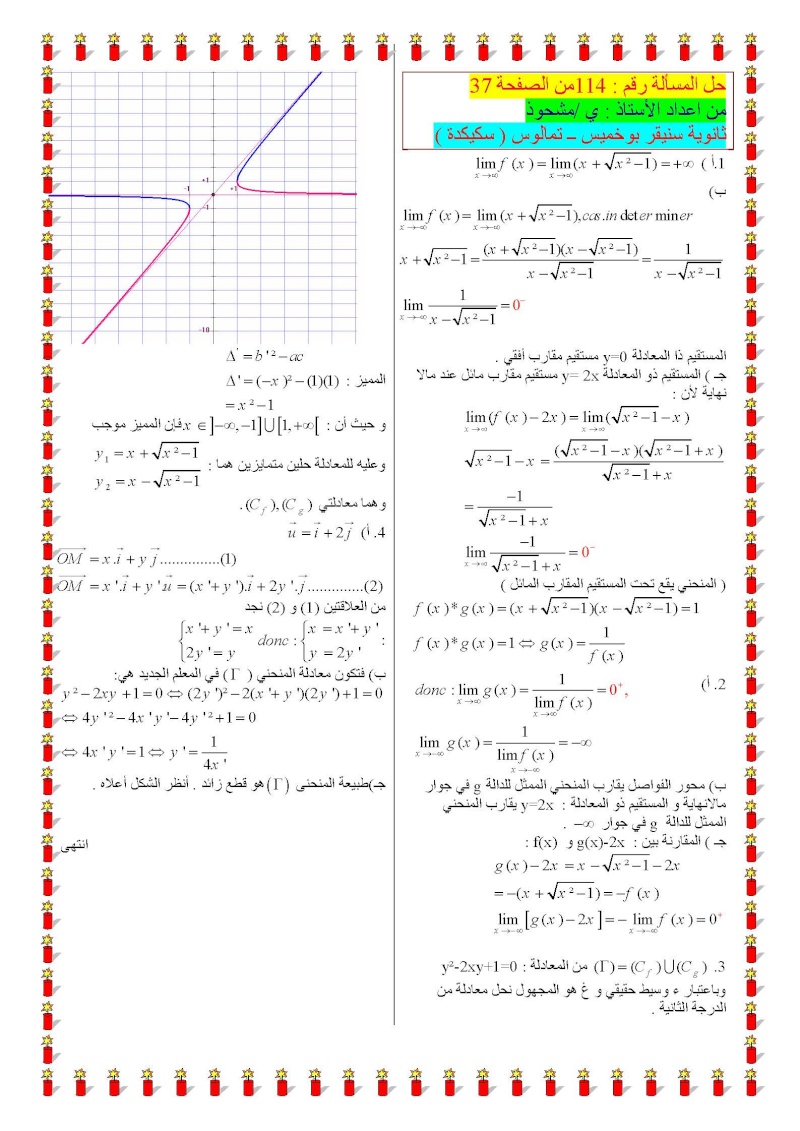 حل المسألة رقم : 114من الصفحة 37
من اعداد الأستاذ : ي /مشحوذ
ثانوية سنيقر بوخميس – تمالوس ( سكيكدة )
1.أ ) lim f (x) = lim(x + √x²−1) = +∞
x→∞ x→∞
ب)
lim f (x) = lim (x + √x²−1),cas.in deter miner
x→−∞ x→−∞
x + √x²−1 = (x + √x²−1)(x − √x²−1) / x − √x²−1 = 1 / x − √x²−1
lim 1 / x − √x²−1 = 0⁻
x→−∞
المستقيم ذا المعادلة y=0 مستقيم مقارب أفقي .
جـ ) المستقيم ذو المعادلة y= 2x مستقيم مقارب مائل عند مالا
نهاية لأن :
lim(f (x) − 2x) = lim(√x²−1 − x)
x→∞ x→∞
√x²−1 − x = (√x²−1 − x)(√x²−1 + x) / √x²−1 + x
= −1 / √x²−1 + x
lim −1 / √x²−1 + x = 0⁻
x→∞
( المنحني يقع تحت المستقيم المقارب المائل )
f (x)* g (x) = (x + √x²−1)(x − √x²−1) = 1
f (x)* g (x) = 1 ⇔ g (x) = 1 / f (x)
2. أ) donc : lim g (x) = 1 / lim f (x) = 0⁺ ,
x→∞ x→∞
lim g (x) = 1 / lim f (x) = −∞
x→−∞ x→−∞
ب) محور الفواصل يقارب المنحني الممثل للدالة g في جوار
مالانهاية و المستقيم ذو المعادلة : y=2x يقارب المنحني
الممثل للدالة g في جوار −∞ .
جـ ) المقارنة بين : g(x)-2x و f(x) :
g (x) − 2x = x − √x²−1 − 2x
= −(x + √x²−1) = −f (x)
lim [g (x) − 2x] = − lim f (x) = 0⁺
x→−∞ x→−∞
3. (Γ) = (C_f) ∪ (C_g) من المعادلة : y²-2xy+1=0
وباعتبار ء وسيط حقيقي و غ هو المجهول نحل معادلة من
الدرجة الثانية .
+1
-1
+1
-1
-10
Δ' = b'² − ac
المميز : Δ' = (−x)² − (1)(1)
= x² − 1
و حيث أن : x ∈ ]−∞,−1] ∪ [1,+∞[ فإن المميز موجب
وعليه للمعادلة حلين متمايزين هما : y₁ = x + √x²−1
y₂ = x − √x²−1
وهما معادلتي (C_f),(C_g) .
4. أ) u = i + 2j
OM = x.i + y j ..............(1)
OM = x'.i + y'.u = (x' + y').i + 2y'.j .............(2)
من العلاقتين (1) و (2) نجد
: {x' + y' = x donc : {x = x' + y'
{2y' = y {y = 2y'
ب) فتكون معادلة المنحني ( Γ ) في المعلم الجديد هي:
y² − 2xy + 1 = 0 ⇔ (2y')² − 2(x' + y')(2y') + 1 = 0
⇔ 4y'² − 4x'y' − 4y'² + 1 = 0
⇔ 4x'y' = 1 ⇔ y' = 1 / 4x'
جـ)طبيعة المنحنى (Γ) هو قطع زائد . أنظر الشكل أعلاه .
انتهى